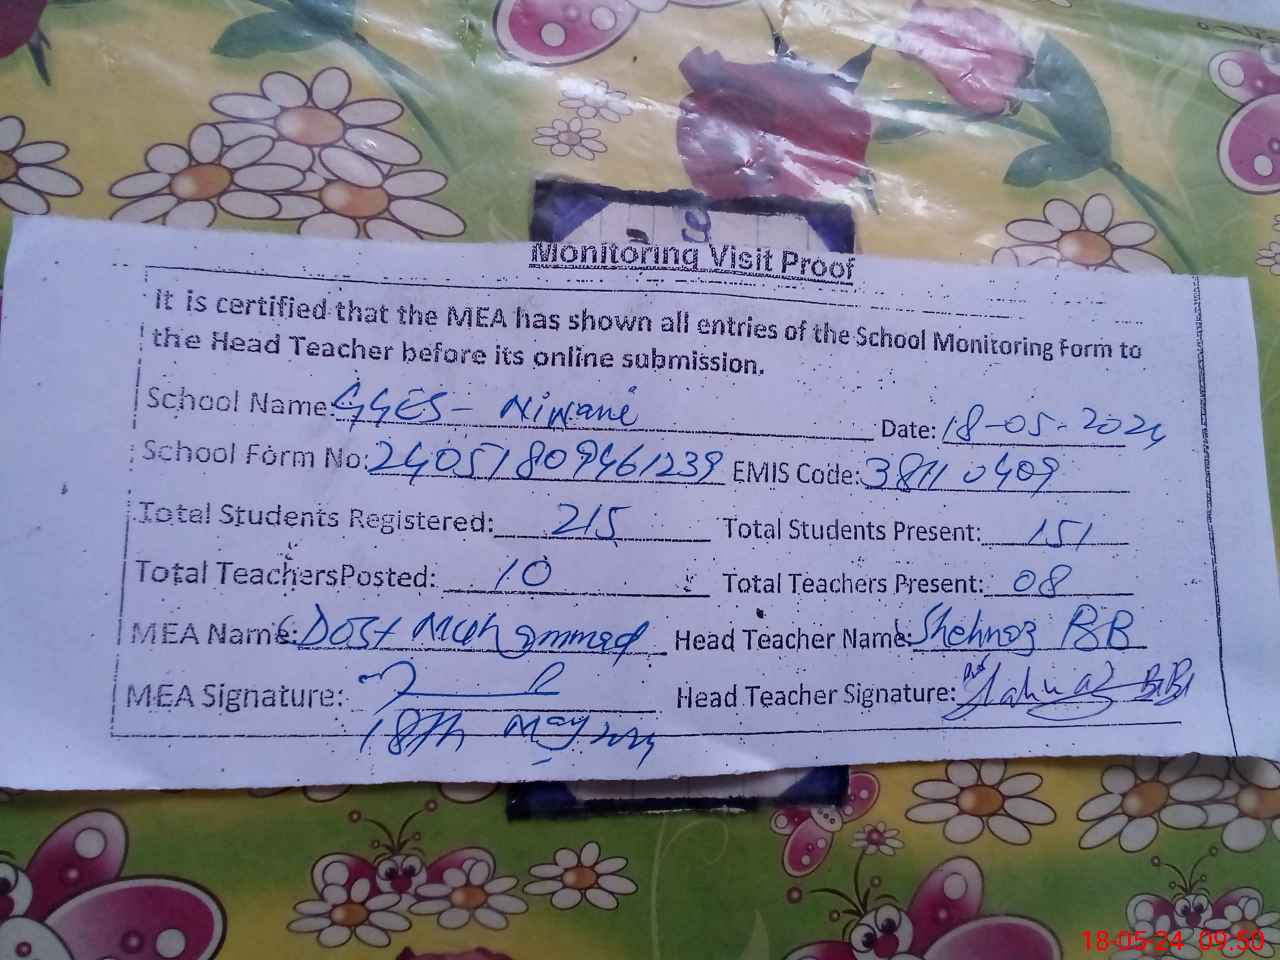 Monitoring Visit Proof
It is certified that the MEA has shown all entries of the School Monitoring Form to
the Head Teacher before its online submission.
School Name: GGES - Niwane Date: 18-05-2024
School Form No: 240518099461239 EMIS Code: 38110409
Total Students Registered: 215 Total Students Present: 151
Total Teachers Posted: 10 Total Teachers Present: 08
MEA Name: Dost Muhammad Head Teacher Name: Shehnaz BB
MEA Signature: Head Teacher Signature: Shahnaz BiBi
18th May 2024
18-05-24 09:50